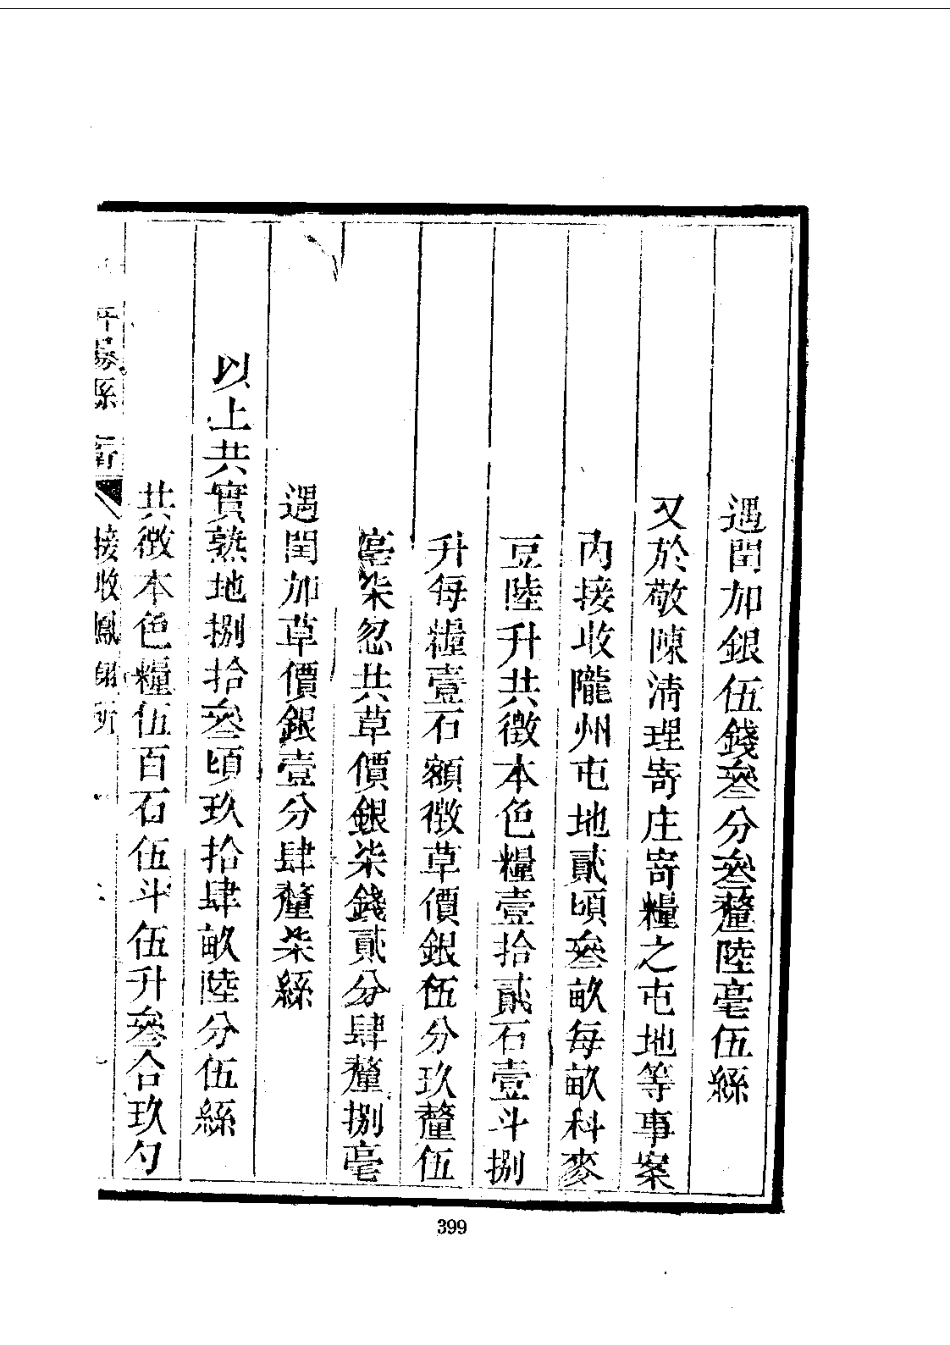 遇閏加銀伍錢叄分叄釐陸毫伍絲
又於敬陳淸理寄庄寄糧之屯地等事案
內接收隴州屯地貳頃叄畝每畝科麥
豆陸升共徵本色糧壹拾貳石壹斗捌
升每糧壹石額徵草價銀伍分玖釐伍
毫柒忽共草價銀柒錢貳分肆釐捌毫
遇閏加草價銀壹分肆釐柒絲
以上共實熟地捌拾叄頃玖拾肆畝陸分伍絲
共徵本色糧伍百石伍斗伍升叄合玖勺
縣 接收鳳翔所
399